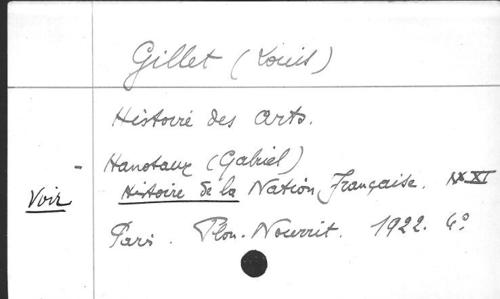 Gillet (Louis)
Histoire des arts.
- Hanotaux (Gabriel)
Voir Histoire de la Nation Française. XI
Paris. Plon-Nourrit. 1922. 4°